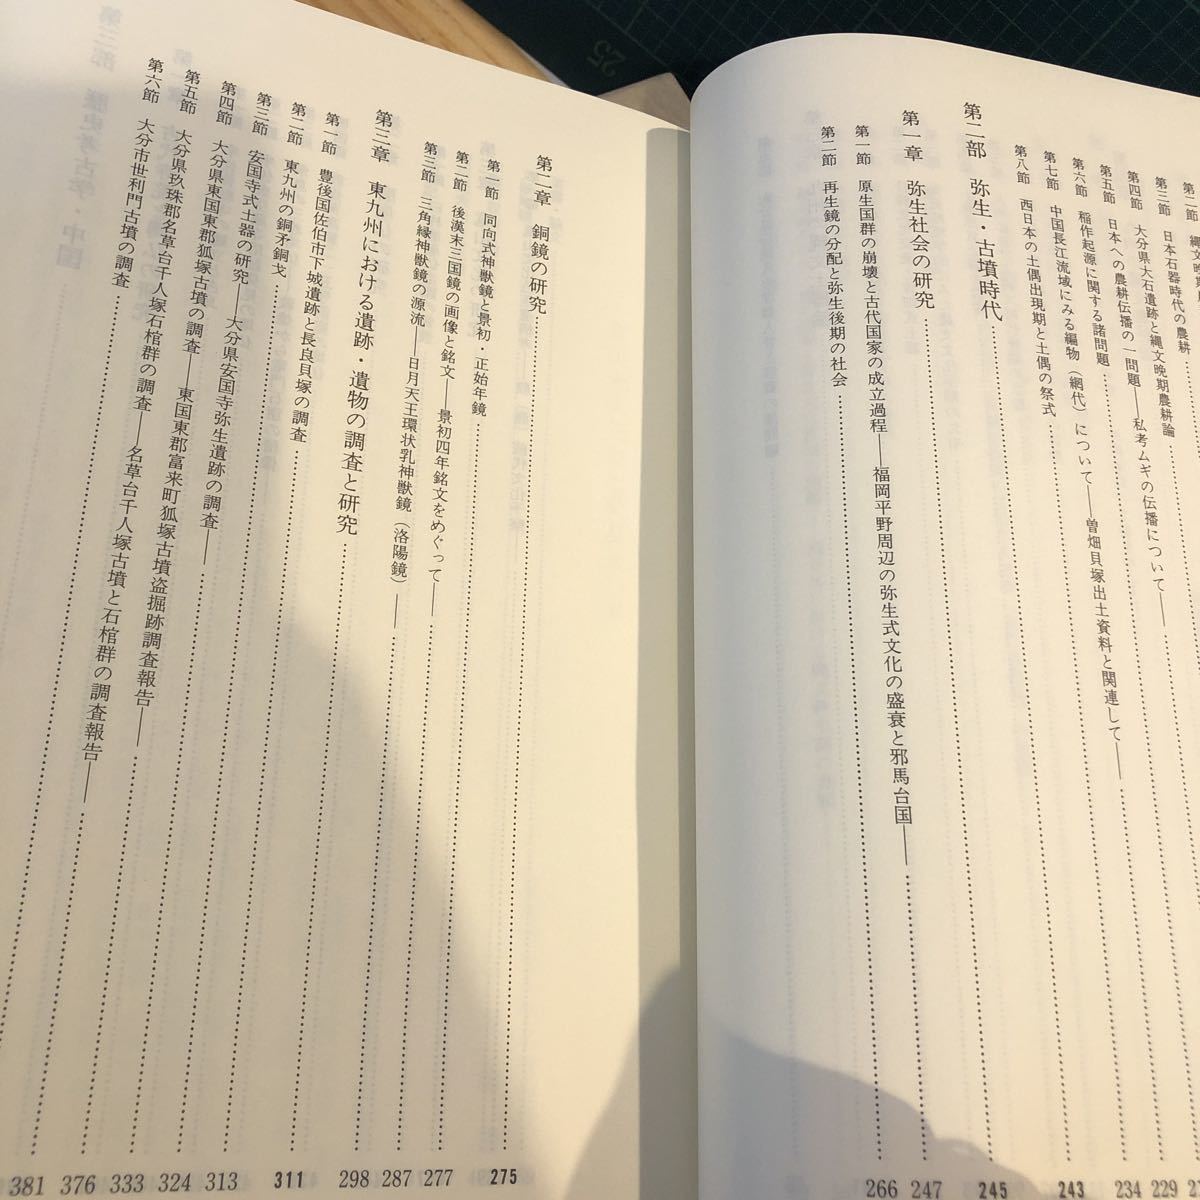 第二節 縄文晩期
第三節 日本石器時代の農耕
第四節 大分県大石遺跡と縄文晩期農耕論
第五節 日本への農耕伝播の一問題——私考ムギの伝播について——
第六節 稲作起源に関する諸問題
第七節 中国長江流域にみる編物(網代)について——曽畑貝塚出土資料と関連して—— 229
第八節 西日本の土偶出現期と土偶の祭式 234
第二部 弥生・古墳時代 243
第一章 弥生社会の研究 245
第一節 原生国群の崩壊と古代国家の成立過程——福岡平野周辺の弥生式文化の盛衰と邪馬台国—— 247
第二節 再生鏡の分配と弥生後期の社会 266
第二章 銅鏡の研究 275
第一節 同向式神獣鏡と景初・正始年鏡 277
第二節 後漢末三国鏡の画像と銘文——景初四年銘文をめぐって—— 287
第三節 三角縁神獣鏡の源流——日月天王環状乳神獣鏡(洛陽鏡)—— 298
第三章 東九州における遺跡・遺物の調査と研究 311
第一節 豊後国佐伯市下城遺跡と長良貝塚の調査 313
第二節 東九州の銅矛銅戈 324
第三節 安国寺式土器の研究——大分県安国寺弥生遺跡の調査—— 333
第四節 大分県東国東郡狐塚古墳の調査——東国東郡富来町狐塚古墳盗掘跡調査報告—— 376
第五節 大分県玖珠郡名草台千人塚石棺群の調査——名草台千人塚古墳と石棺群の調査報告—— 381
第六節 大分市世利門古墳の調査
第三部 歴史考古学・中国
25